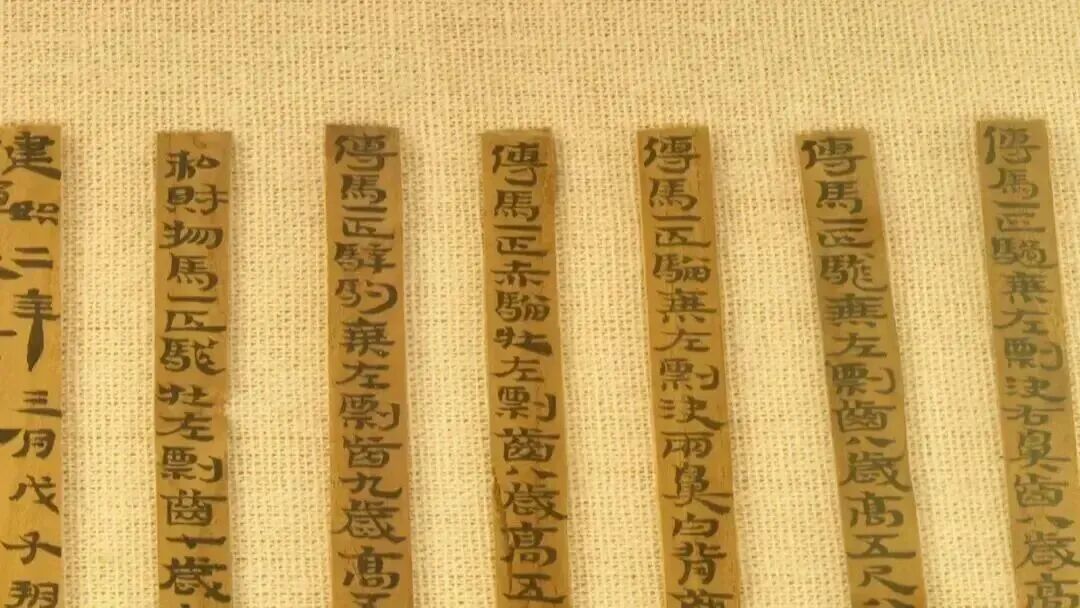 傳馬一匹騩乘左剽決右鼻齒八歲高
傳馬一匹駹乘左剽齒八歲高五尺八
傳馬一匹騮乘左剽決兩鼻白背齒
傳馬一匹赤騮牡左剽齒八歲高五
傳馬一匹騂駒乘左剽齒九歲高五
私財物馬一匹駹牡左剽齒七歲
建始二年三月戊子朔